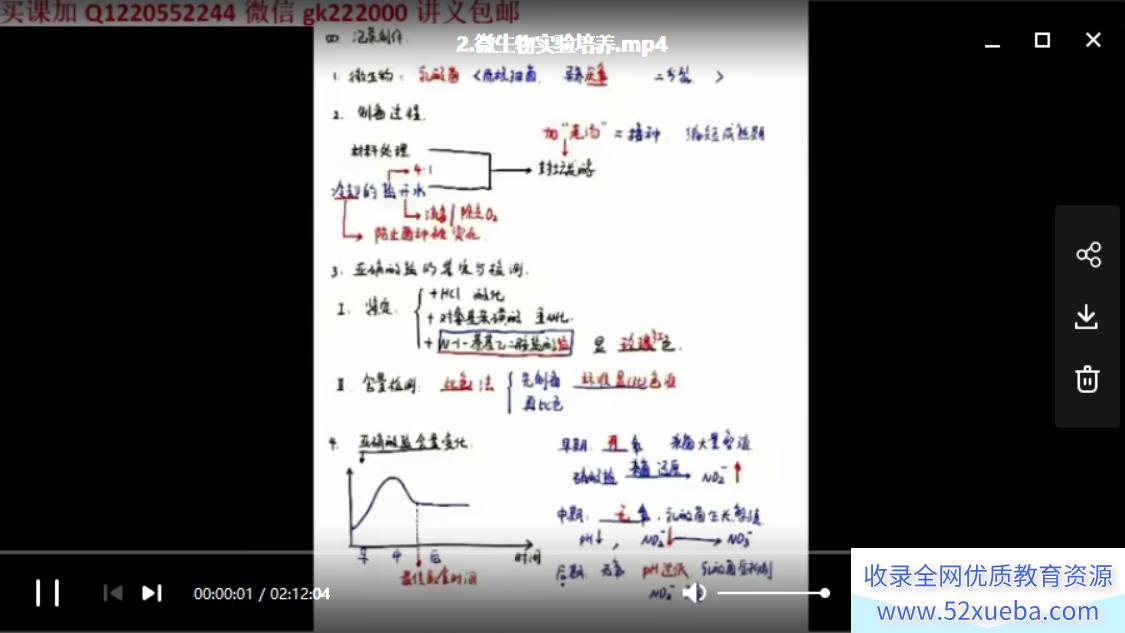 买课加 Q1220552244 微信 gk222000 讲义包邮
2.微生物实验培养.mp4
四 泡菜制作.
1. 微生物: 乳酸菌 <原核细菌. 异养厌氧 二分裂. >
2. 制备过程.
加"老汤" = 接种. 缩短成熟期
材料处理
4:1
封坛发酵
冷却的盐开水
消毒 / 除去O₂
防止菌种被
3. 亚硝酸盐的鉴定与检测.
I. 鉴定:
+ HCl 酸化
+ 对氨基苯磺酸 重氮化.
+ N-1-萘基乙二胺盐酸盐 显 玫瑰红色.
II. 含量检测: 比色法
先制备 标准显色液
再比色
4. 亚硝酸盐含量变化.
早期: 有氧 杂菌大量繁殖
硝酸盐 杂菌还原 NO₂⁻↑
中期: 无氧, 乳酸菌生长繁殖
pH↓, NO₂⁻↓ → NO₃⁻
早 中 后 时间
最佳取食时间
后期: 无氧 pH过低 乳酸菌受抑制
NO₂⁻
00:00:01 / 02:12:04
收录全网优质教育资源
www.52xueba.com